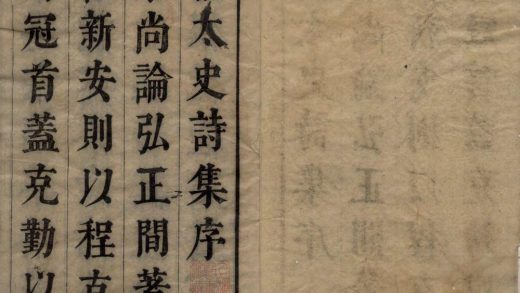 太史詩集序
尚論弘正間著
新安則以程克
冠首蓋克勤以